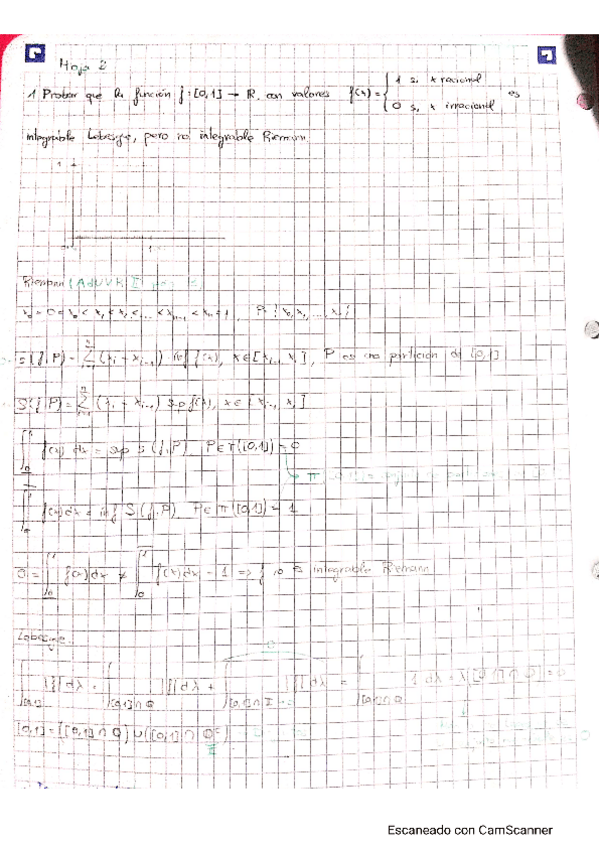 Hoja 2
1 Probar que la función f:[0,1] → R con valores f(x)={ 1 si x racional
0 si x irracional es
integrable Lebesgue, pero no integrable Riemann.
1
Riemann (
x₀ = 0 < x₁ < x₂ < ... < xₙ₋₁ < xₙ = 1, P={x₀, x₁, ..., xₙ}
s(f,P) = Σ (xᵢ - xᵢ₋₁) inf f(x), x∈[xᵢ₋₁, xᵢ], P es una partición de [0,1]
S(f,P) = Σ (xᵢ - xᵢ₋₁) sup f(x), x∈[xᵢ₋₁, xᵢ]
∫₀¹ f(x) dx = sup s(f,P) P∈π([0,1]) = 0
∫₀¹ f(x)dx = inf S(f,P) P∈π([0,1]) = 1
0 = ∫₀¹ f(x)dx ≠ ∫₀¹ f(x)dx = 1 => f no es integrable Riemann
Lebesgue:
∫[0,1] |f|dλ = ∫[0,1]∩Q |f|dλ + ∫[0,1]∩I |f|dλ = ∫[0,1]∩Q 1 dλ = λ([0,1]∩Q) = 0
[0,1] = ([0,1]∩Q) ∪ ([0,1]∩Qᶜ)
I
Escaneado con CamScanner